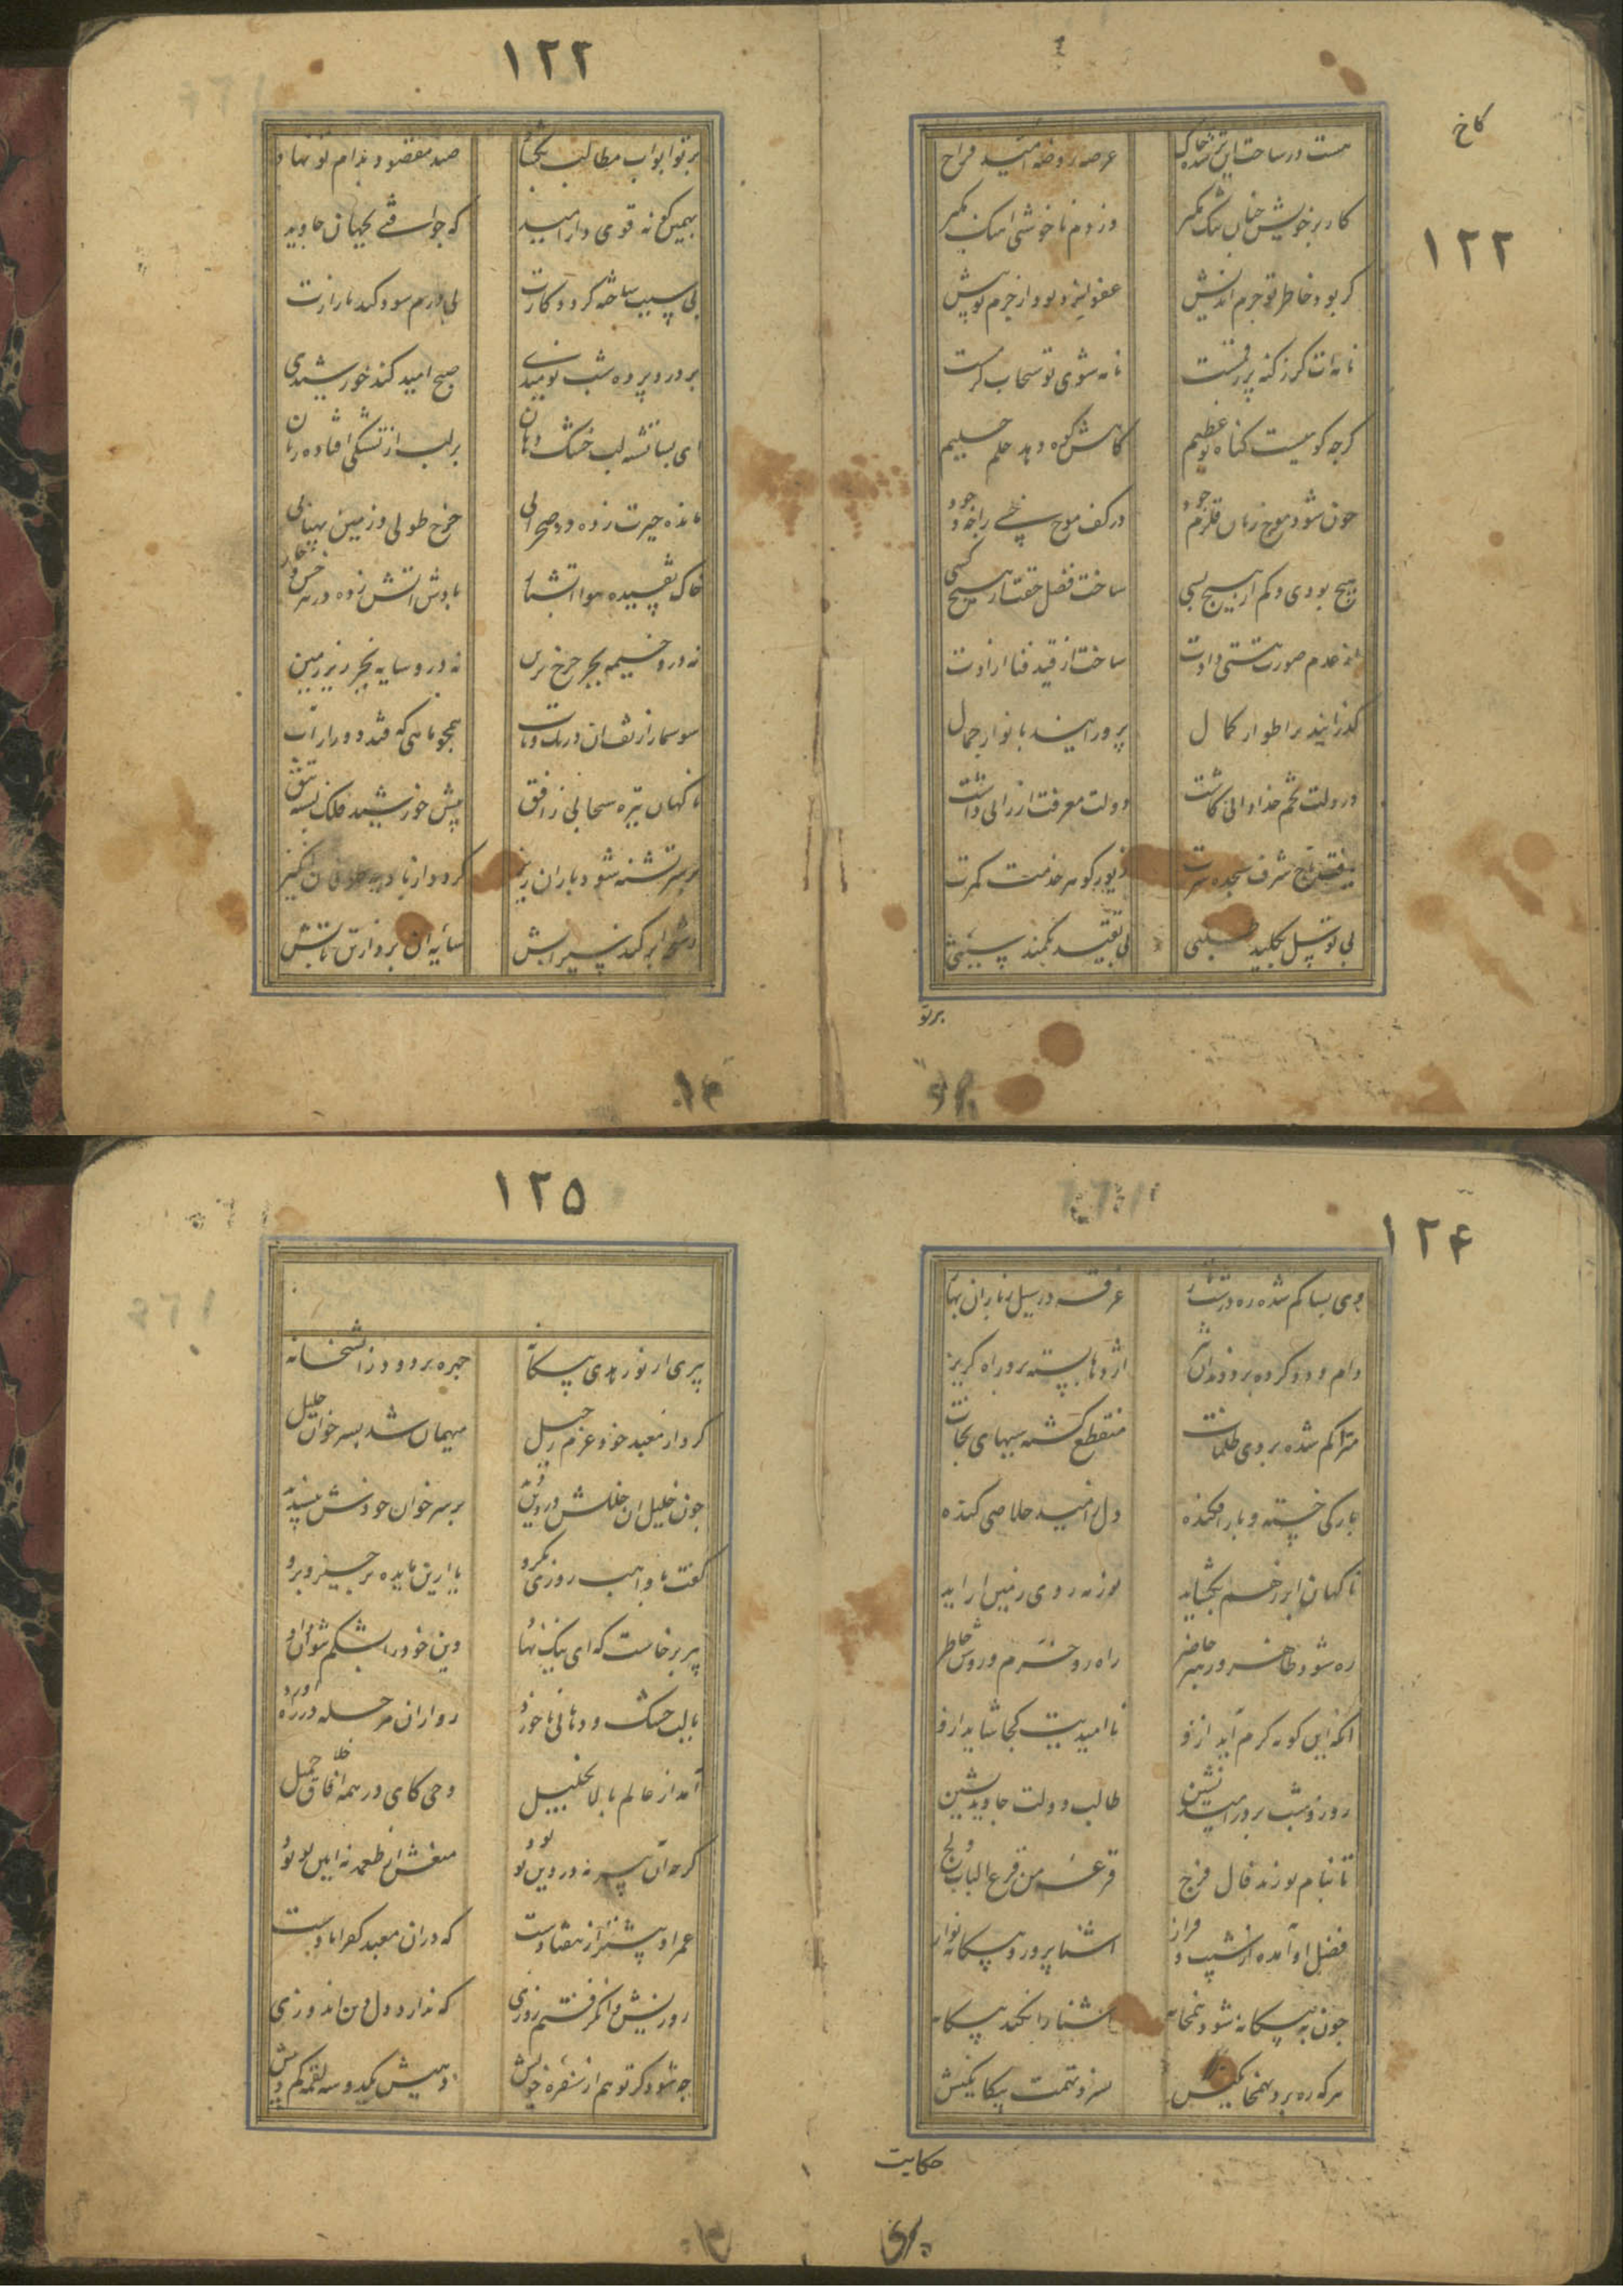 کاخ
١٢٢
هست در ساحت این تیره خاک عرصه روضه امید فراخ
کار بر خویش چنین تنگ مگیر وز دم ناخوشی آهنگ مگیر
گر بود خاطر تو جرم اندیش عفو ایزد بود از جرم تو بیش
نامه ات گر ز گنه پر رقمست نامه شوی تو سحاب کرمست
گرچه کوهیست گناه تو عظیم کاهش کوه دهد حلم حلیم
چون شود موج زنان قلزم جود در کف موج خسی را چه وجود
هیچ بودی و کم از هیچ بسی ساخت فضل حقت از هیچ کسی
از عدم صورت هستی دادت ساخت از قید فنا آزادت
گذرانید بر اطوار کمال پرورانید بانوار جمال
در دلت تخم خدادانی کاشت دولت معرفت ارزانی داشت
یافت تاج شرف سجده سرت زیور گوهر خدمت کمرت
بی توسل بکلید طلبی بی تقید بکمند سببی
برتو
١٢٢
برتو ابواب مطالب بگشاد صید مقصود بدام تو نهاد
بهمین گونه قوی دار امید که چو افتی بجهان جاوید
بی سبب ساخته گردد کارت بی درم سود کند بازارت
بر درد پرده شب نومیدی صبح امید کند خورشیدی
ای بسا تشنه لب خشک دهان بر لب از تشنگی افتاده زبان
مانده حیرت زده در صحرائی چرخ طولی و زمین پهنائی
خاک تفسیده هوا آتشبار بادش آتش زده در هر خس و خار
نه درو خیمه بجز چرخ برین نه درو سایه بجز زیر زمین
سوسمار از تف آن در تک و تاب همچو ماهی که فتد دور از آب
ناگهان تیره سحابی ز افق پیش خورشید فلک بسته تتق
بر سر تشنه شود باران ریز گردد از بادیه طوفان انگیز
رشح ابر کند سیرابش سایه آن برد از تن تابش
١٢۴
وی بسا گم شده ره در شب تار غرقه در سیل ز باران بهار
دام و دد کرده برو دندان تیز اژدها بسته برو راه گریز
متراکم شده بروی ظلمات منقطع گشته سببهای نجات
بارگی خسته و بار افکنده دل ز امید خلاصی کنده
ناگهان ابر ز هم بگشاید نور مه روی زمین آراید
ره شود ظاهر و رهبر حاضر راه رو خرم و روشن خاطر
آنکه این گونه کرم آید ازو ناامیدیت کجا شاید ازو
روز و شب بر در امید نشین طالب دولت جاوید نشین
تا بنام تو زند فال فرج قرعه من قرع الباب ولج
فضل او آمده از شیب و فراز آشنا پرور و بیگانه نواز
چون به بیگانه شود همخانه آشنا را نکند بیگانه
هر که ره برد بهمخانگیش نسزد تهمت بیگانگیش
حکایت
١٢۵
پیری از نور هدی بیگانه چهره پر دود ز آتشخانه
کرد از معبد خود عزم رحیل میهمان شد بسر خوان خلیل
چون خلیل آن خللش در دین دید بر سر خوان خودش نپسندید
گفت با واهب روزی بگرو یا ازین مایده برخیز و برو
پیر برخاست که ای نیک نهاد دین خود را بشکم نتوان داد
با لب خشک و دهانی ناخورد روی ازان مرحله در راه آورد
آمد از عالم بالا بخلیل وحی کای در همه اخلاق جمیل
گرچه آن پیر نه در دین تو بود منعش از طعمه نه آیین تو بود
عمر او بیشتر از هفتادست که دران معبد کفر آبادست
روزیش وا نگرفتم روزی که ندارد دل دین اندوزی
چه شود گر تو هم از سفره خویش دهیش یکدو سه لقمه کم و بیش